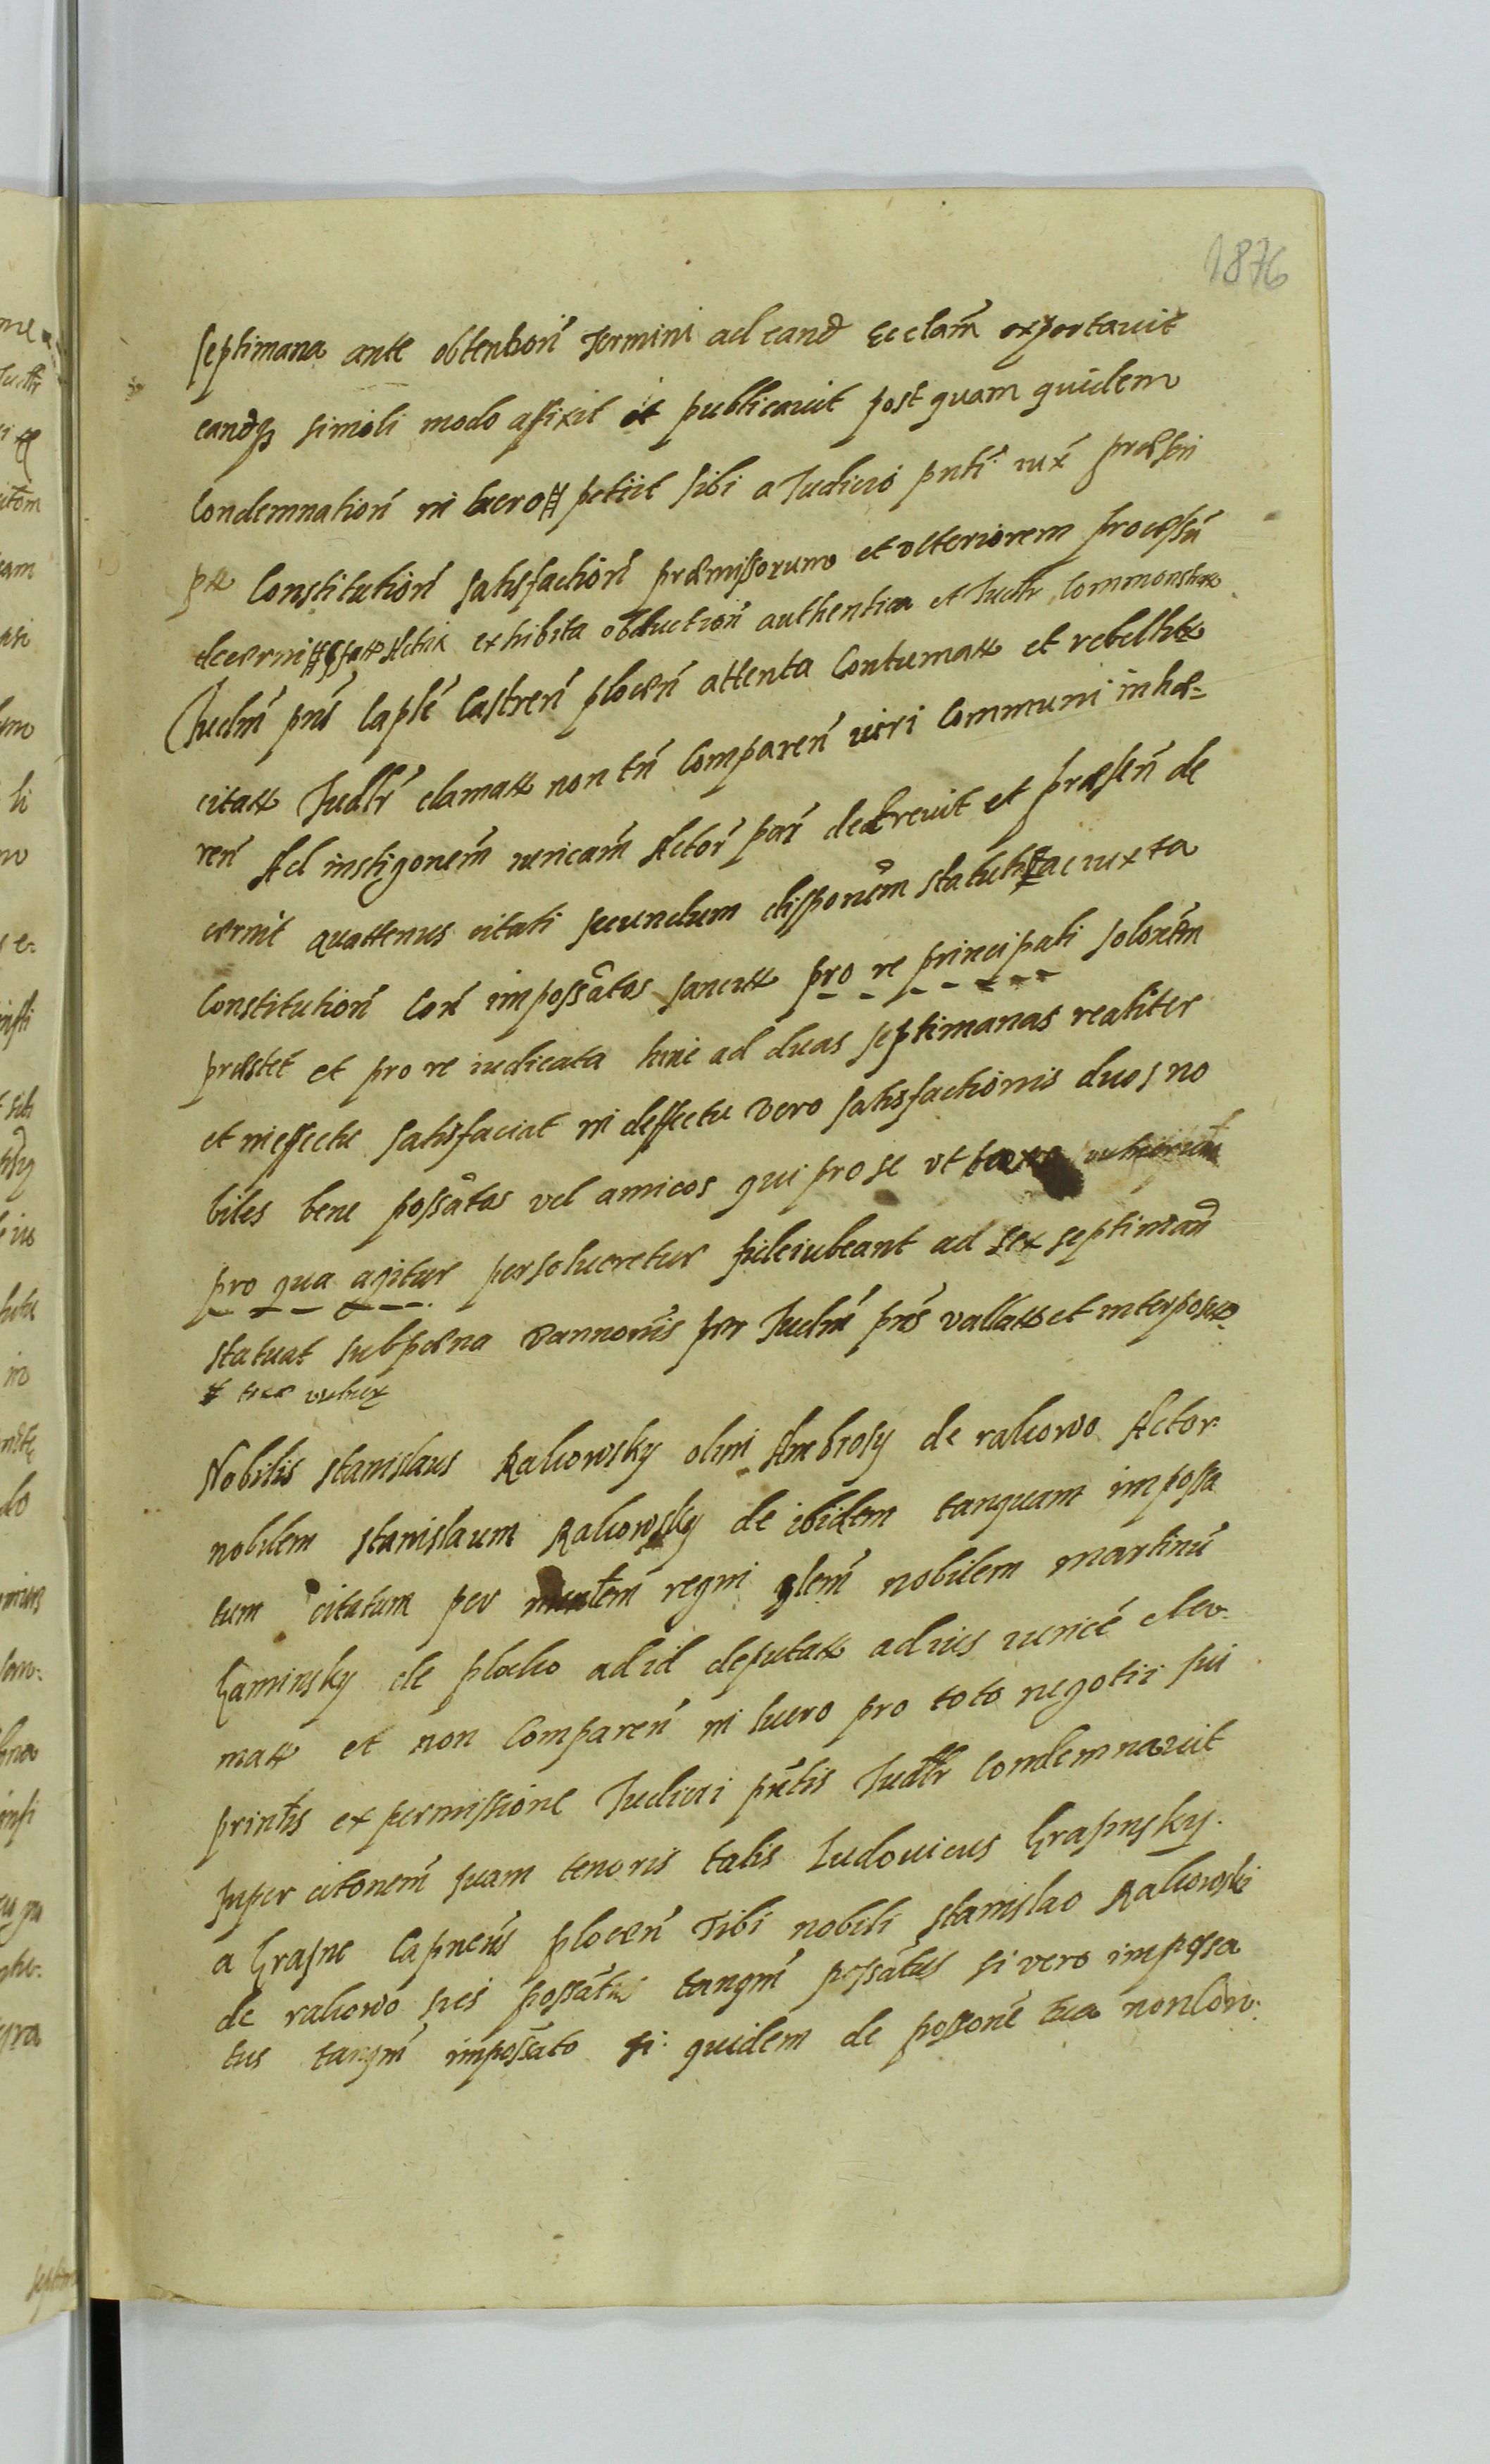 1876
septimana ante obtentionē Termini ad eand Ecclam exportavit
eandq simili modo affixit et publicavit post quam quidem
Condemnationē in lucro petiit sibi a Iudicio pnti iux praescri
Constitutionē satisfactionē praemissorum et ulteriorem processū
decerni Actis exhibita obductionē authentica et Iudlr Commonstrat
Iudm pns Caple Castren plocen attenta Contumat et rebellit
citat Iudlr clamat non tn Comparen iuri Communi inhae-
ren Ad instigonem iuricam Actor pari decrevit et praesen de
cernit quattenus citati secundum disponem statuti ac iuxta
Constitutionē Con impossatos sancit pro re principali solonem
praestet et pro re iudicata hinc ad duas septimanas realiter
et in effectu satisfaciat in deffectu vero satisfactionis duos no
biles bene possatos vel amicos qui pro se ut
pro qua agitur persolveretur fideiubeant ad sex septiman
statuat sub paena bannonis per Iudm pns vallat et interposit
Nobilis Stanislaus Rakowsky olim Ambrosy de rakowo Actor
nobilem Stanislaum Rakowsky de ibidem tanquam impossa
tum citatum per regni glem nobilem Martinū
Kaminsky de plocko ad id deputat ad ius iurice clam
mat et non Comparen in lucro pro toto negotii sui
printis ex permissione Iudicii pntis Iudlr Condemnavit
super citonem suam tenoris talis Ludovicus Krasinsky
a Krasne Capneus plocen Tibi nobili Stanislao Rakowski
de rakowo sis possatus tanqm possatus si vero impossa
tus tanqm impossato si quidem de possone tua non Con